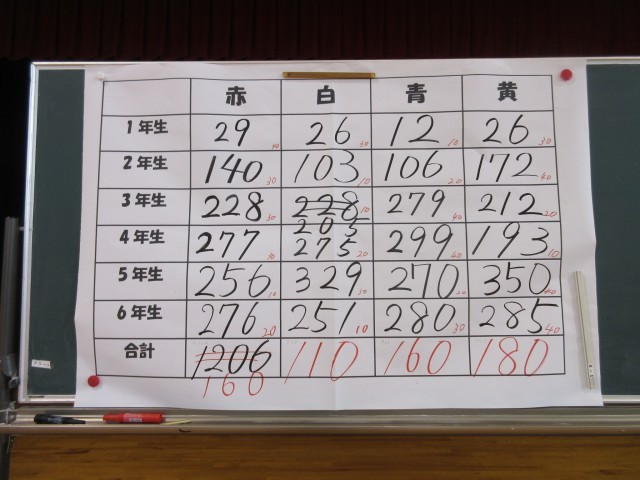 赤 白 青 黄
1年生 29 26 30 12 10 26 30
2年生 140 30 103 10 106 20 172 40
3年生 228 30 228 10 205 279 40 212 20
4年生 277 30 275 20 299 40 193 10
5年生 256 10 329 30 270 350 40
6年生 276 20 251 10 280 30 285 40
合計 1206 160 110 160 180